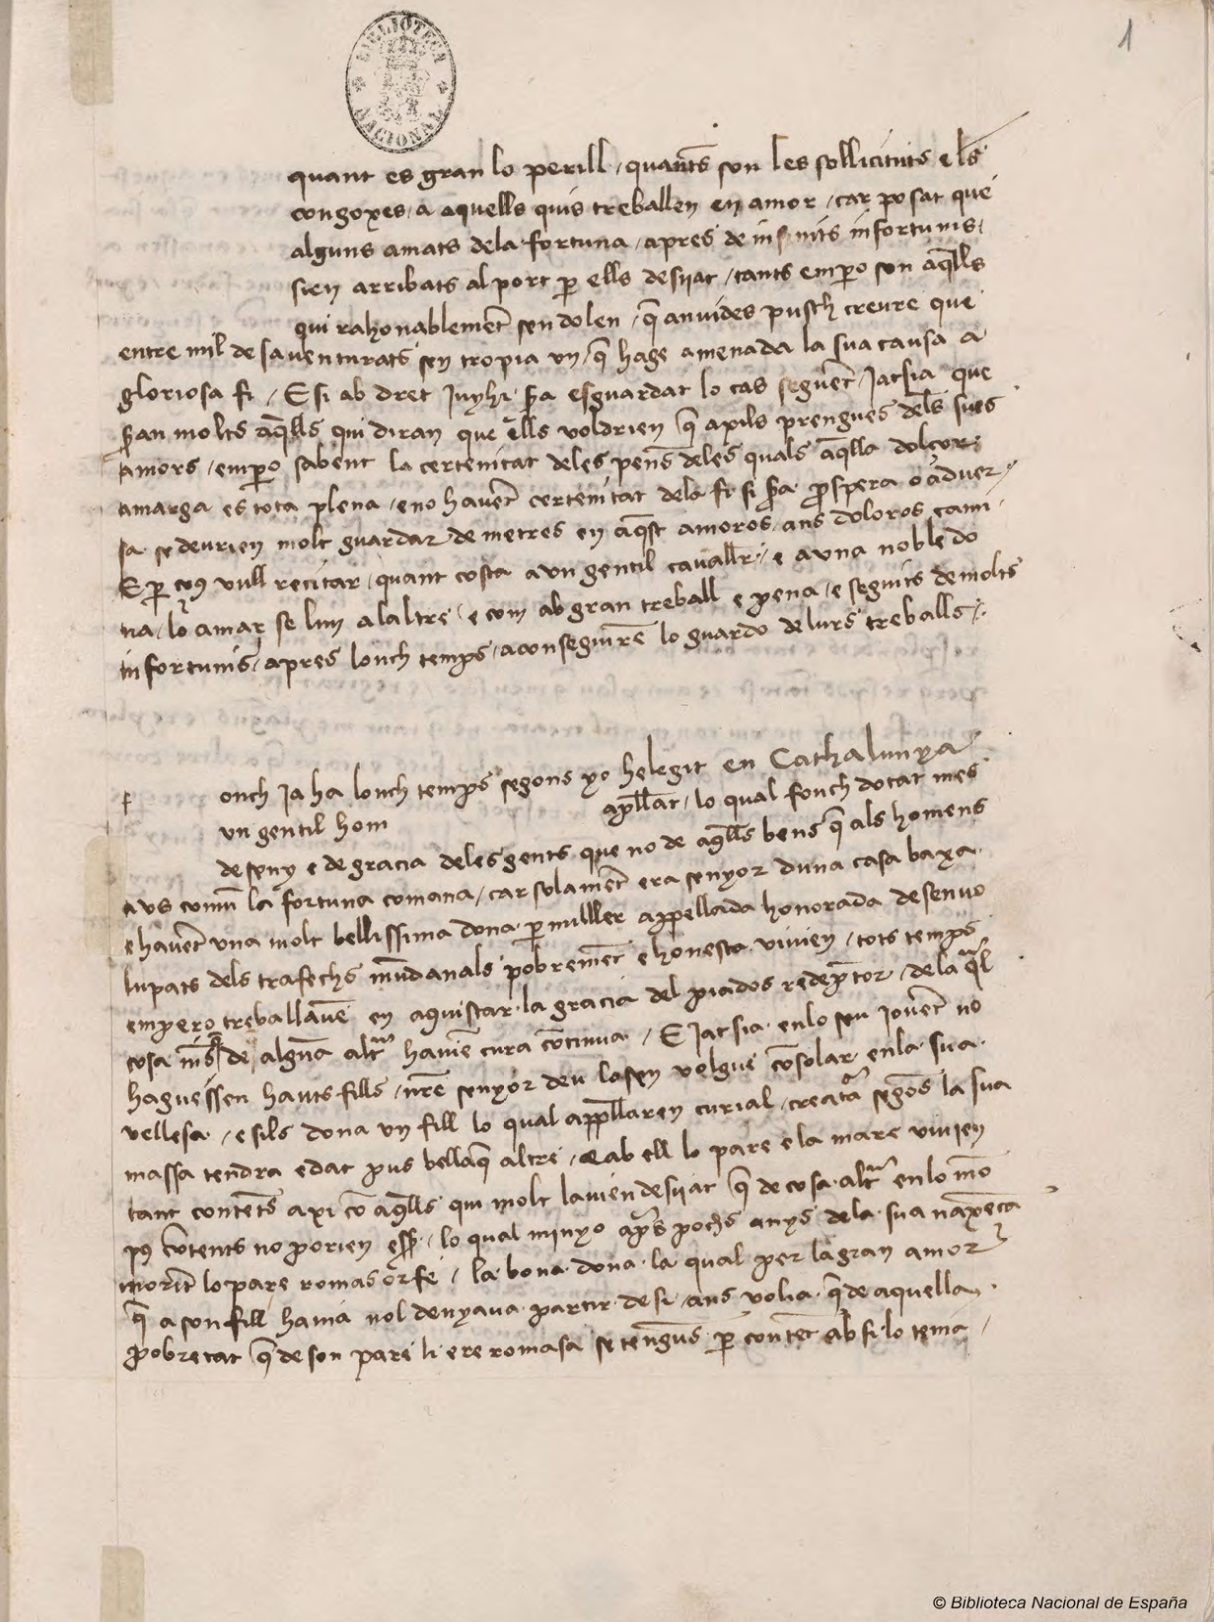 1
BIBLIOTECA NACIONAL
quant es gran lo perill / quants son les sollicituts e les
congoxes / a aquells quis treballen en amor / car posat que
alguns amats dela fortuna / apres de infinits infortunis /
sien arribats al port p ells desijat / tants empo son aq̅lls
qui rahonablemēt sen dolen / q̅ anvides pusch creure que
entre mil desaventurats sen tropia vn / q̅ hage amenada la sua causa a
gloriosa fi / E si ab dret Juyhi sa esguardat lo cas seguēt / Jatsia que
san molts aq̅lls qui diran que ells voldrien q̅ axils prengues dels sues
amors / empo sabent la certenitat deles penes deles quals aq̅lla dolçor
amarga es tota plena / e no havēt certenitat dela fi si sa prospera o adver
sa se deurien molt guardar de metres en aq̅st amoros ans doloros cami
E p ço vull recitar / quant costa a vn gentil cavaller / e a vna noble do
na / lo amar se lun alaltre / e com ab gran treball e pena / e seguits de molts
infortunis / apres lonch temps / aconseguirē lo guardo de lurs treballs /
f onch Ja ha lonch temps segons yo he legit en Cathalunya
vn gentil hom apllat / lo qual fonch dotat mes
de seny e de gracia deles gents que no de aq̅lls bens q̅ als homens
avs comū la fortuna comana / car solamēt era senyor duna casa baxa
e havēt vna molt bellissima dona p muller appellada honorada desenvo
lupats dels trafechs mūdanals pobremēt e honesta vivien / tots temps
empero treballavē en aquistar la gracia del piados redēptor / de la q̅l
cosa mes de alguna altra havē cura cōtinua / E Jatsia en lo seu Jovēt no
haguessen hauts fills / nr̄e senyor deu lasen volgue cōsolar en la sua
vellesa / e sils dona vn fill lo qual appllaren curial / creatā segōs la sua
massa tendra edat pus bella q̅ altre / e ab ell lo pare e la mare vivien
tant contēts axi cō aq̅lls qui molt lavien desijat q̅ de cosa altr̄ en lo mō
pus cōtents no porien esser / lo qual minyo aprs pochs anys de la sua naxēça
morīt lo pare romas orfe / la bona dona la qual per la gran amor
q̅ a son fill havia nol denyava partir de si / ans volia q̅ de aquella
pobretat q̅ de son pare li ere romasa se tengues p content e ab si lo tenia /
© Biblioteca Nacional de España